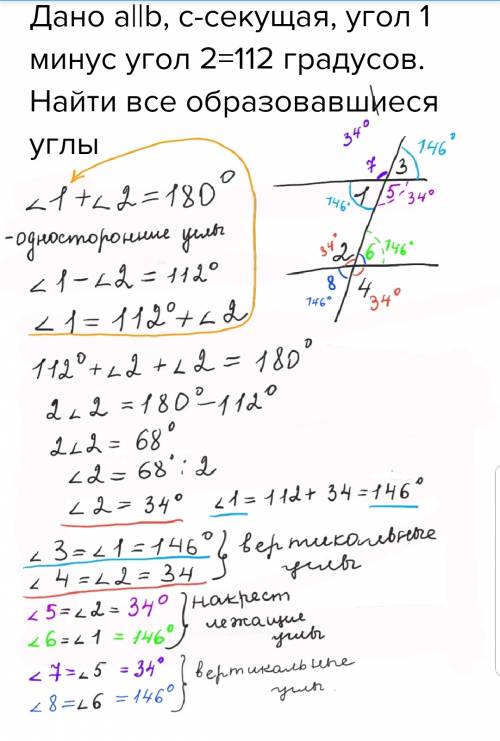 Дано a||b, с-секущая, угол 1
минус угол 2=112 градусов.
Найти все образовавшиеся
углы
34°
7 3 146°
1 5 34°
146°
34° 2 6 146°
8 4
146° 34°
∠1+∠2=180°
-односторонние углы
∠1-∠2=112°
∠1=112°+∠2
112°+∠2+∠2=180°
2∠2=180°-112°
2∠2=68°
∠2=68°:2
∠2=34° ∠1=112+34=146°
∠3=∠1=146° } вертикальные
∠4=∠2=34 углы
∠5=∠2=34° } накрест
лежащие
∠6=∠1=146° углы
∠7=∠5=34° } вертикальные
∠8=∠6=146° углы.